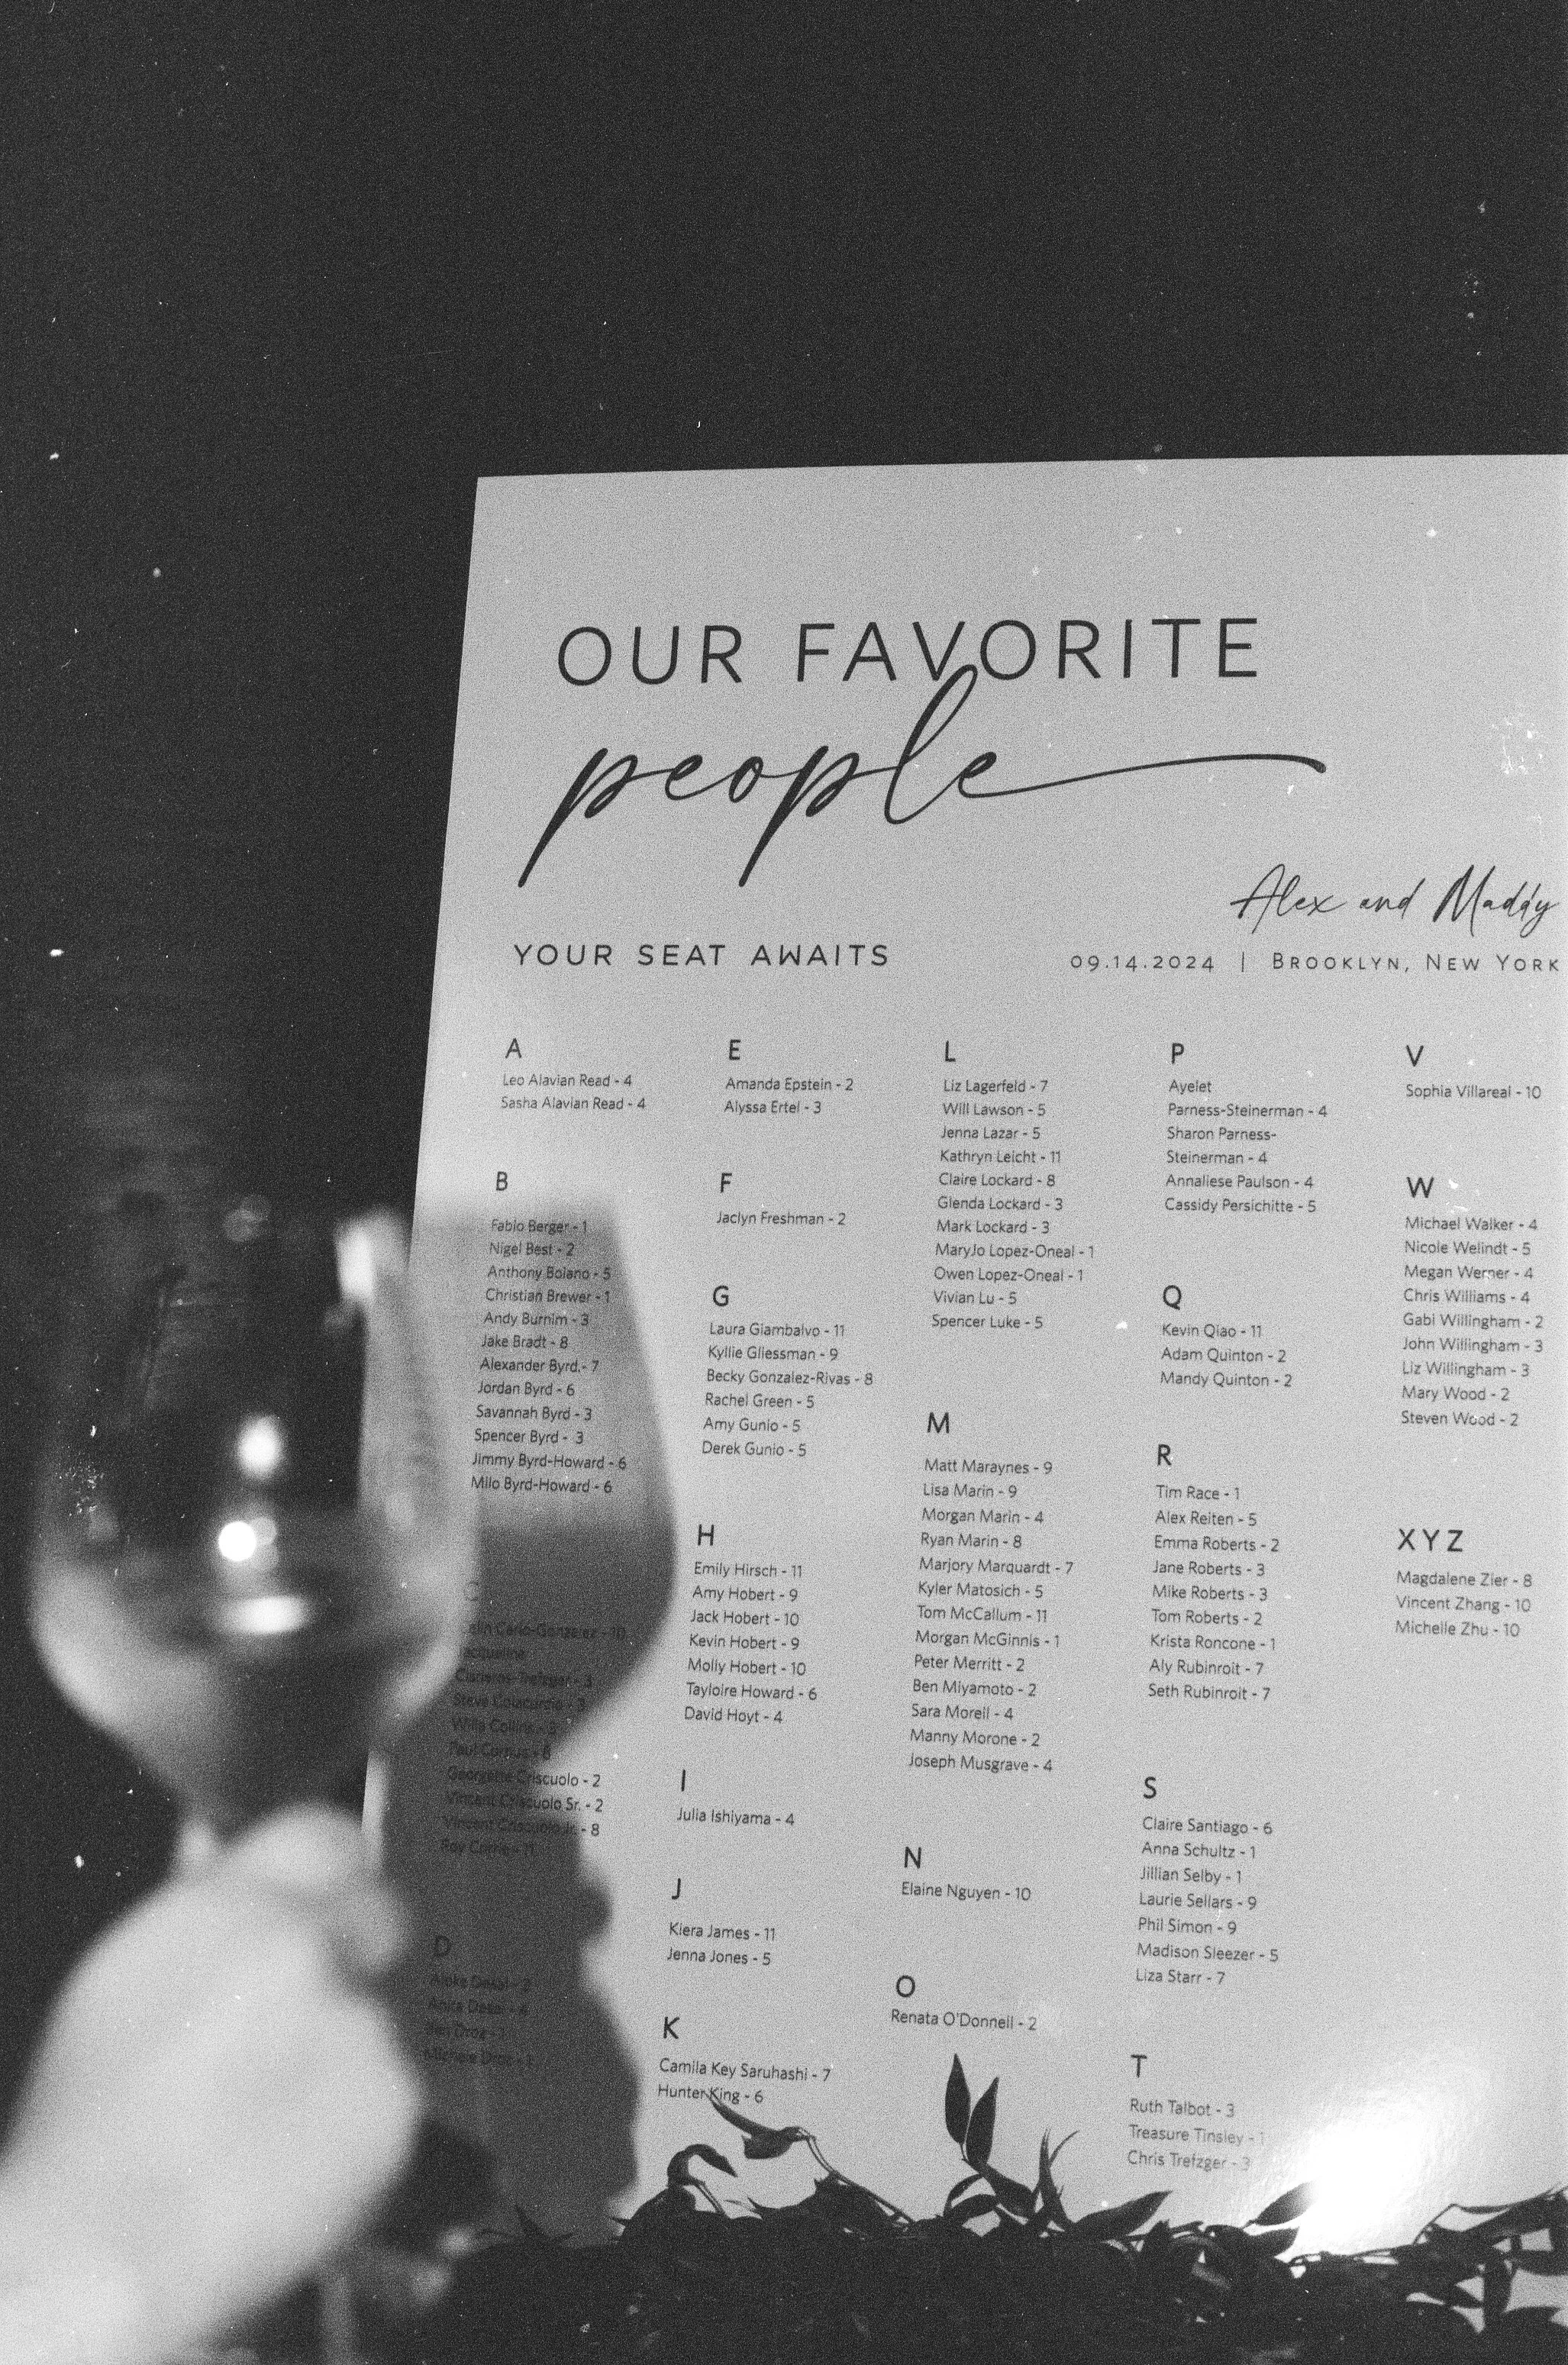 OUR FAVORITE
people
Alex and Maddy
YOUR SEAT AWAITS
09.14.2024 | BROOKLYN, NEW YORK
A
Leo Alavian Read - 4
Sasha Alavian Read - 4
B
Fabio Berger - 1
Nigel Best - 2
Anthony Bolano - 5
Christian Brewer - 1
Andy Burnim - 3
Jake Bradt - 8
Alexander Byrd - 7
Jordan Byrd - 6
Savannah Byrd - 3
Spencer Byrd - 3
Jimmy Byrd-Howard - 6
Milo Byrd-Howard - 6
C
- 10
Steve
Willa Collins
Paul
Georgette Criscuolo - 2
Vincent Criscuolo Sr. - 2
Vincent Criscuolo Jr. - 8
D
Desai
Anita Desai
Ben Droz
Michele Droz
E
Amanda Epstein - 2
Alyssa Ertel - 3
F
Jaclyn Freshman - 2
G
Laura Giambalvo - 11
Kyllie Gliessman - 9
Becky Gonzalez-Rivas - 8
Rachel Green - 5
Amy Gunio - 5
Derek Gunio - 5
H
Emily Hirsch - 11
Amy Hobert - 9
Jack Hobert - 10
Kevin Hobert - 9
Molly Hobert - 10
Tayloire Howard - 6
David Hoyt - 4
I
Julia Ishiyama - 4
J
Kiera James - 11
Jenna Jones - 5
K
Camila Key Saruhashi - 7
Hunter King - 6
L
Liz Lagerfeld - 7
Will Lawson - 5
Jenna Lazar - 5
Kathryn Leicht - 11
Claire Lockard - 8
Glenda Lockard - 3
Mark Lockard - 3
MaryJo Lopez-Oneal - 1
Owen Lopez-Oneal - 1
Vivian Lu - 5
Spencer Luke - 5
M
Matt Maraynes - 9
Lisa Marin - 9
Morgan Marin - 4
Ryan Marin - 8
Marjory Marquardt - 7
Kyler Matosich - 5
Tom McCallum - 11
Morgan McGinnis - 1
Peter Merritt - 2
Ben Miyamoto - 2
Sara Morell - 4
Manny Morone - 2
Joseph Musgrave - 4
N
Elaine Nguyen - 10
O
Renata O'Donnell - 2
P
Ayelet
Parness-Steinerman - 4
Sharon Parness-
Steinerman - 4
Annaliese Paulson - 4
Cassidy Persichitte - 5
Q
Kevin Qiao - 11
Adam Quinton - 2
Mandy Quinton - 2
R
Tim Race - 1
Alex Reiten - 5
Emma Roberts - 2
Jane Roberts - 3
Mike Roberts - 3
Tom Roberts - 2
Krista Roncone - 1
Aly Rubinroit - 7
Seth Rubinroit - 7
S
Claire Santiago - 6
Anna Schultz - 1
Jillian Selby - 1
Laurie Sellars - 9
Phil Simon - 9
Madison Sleezer - 5
Liza Starr - 7
T
Ruth Talbot - 3
Treasure Tinsley - 1
Chris Trefzger - 3
V
Sophia Villareal - 10
W
Michael Walker - 4
Nicole Welindt - 5
Megan Werner - 4
Chris Williams - 4
Gabi Willingham - 2
John Willingham - 3
Liz Willingham - 3
Mary Wood - 2
Steven Wood - 2
XYZ
Magdalene Zier - 8
Vincent Zhang - 10
Michelle Zhu - 10